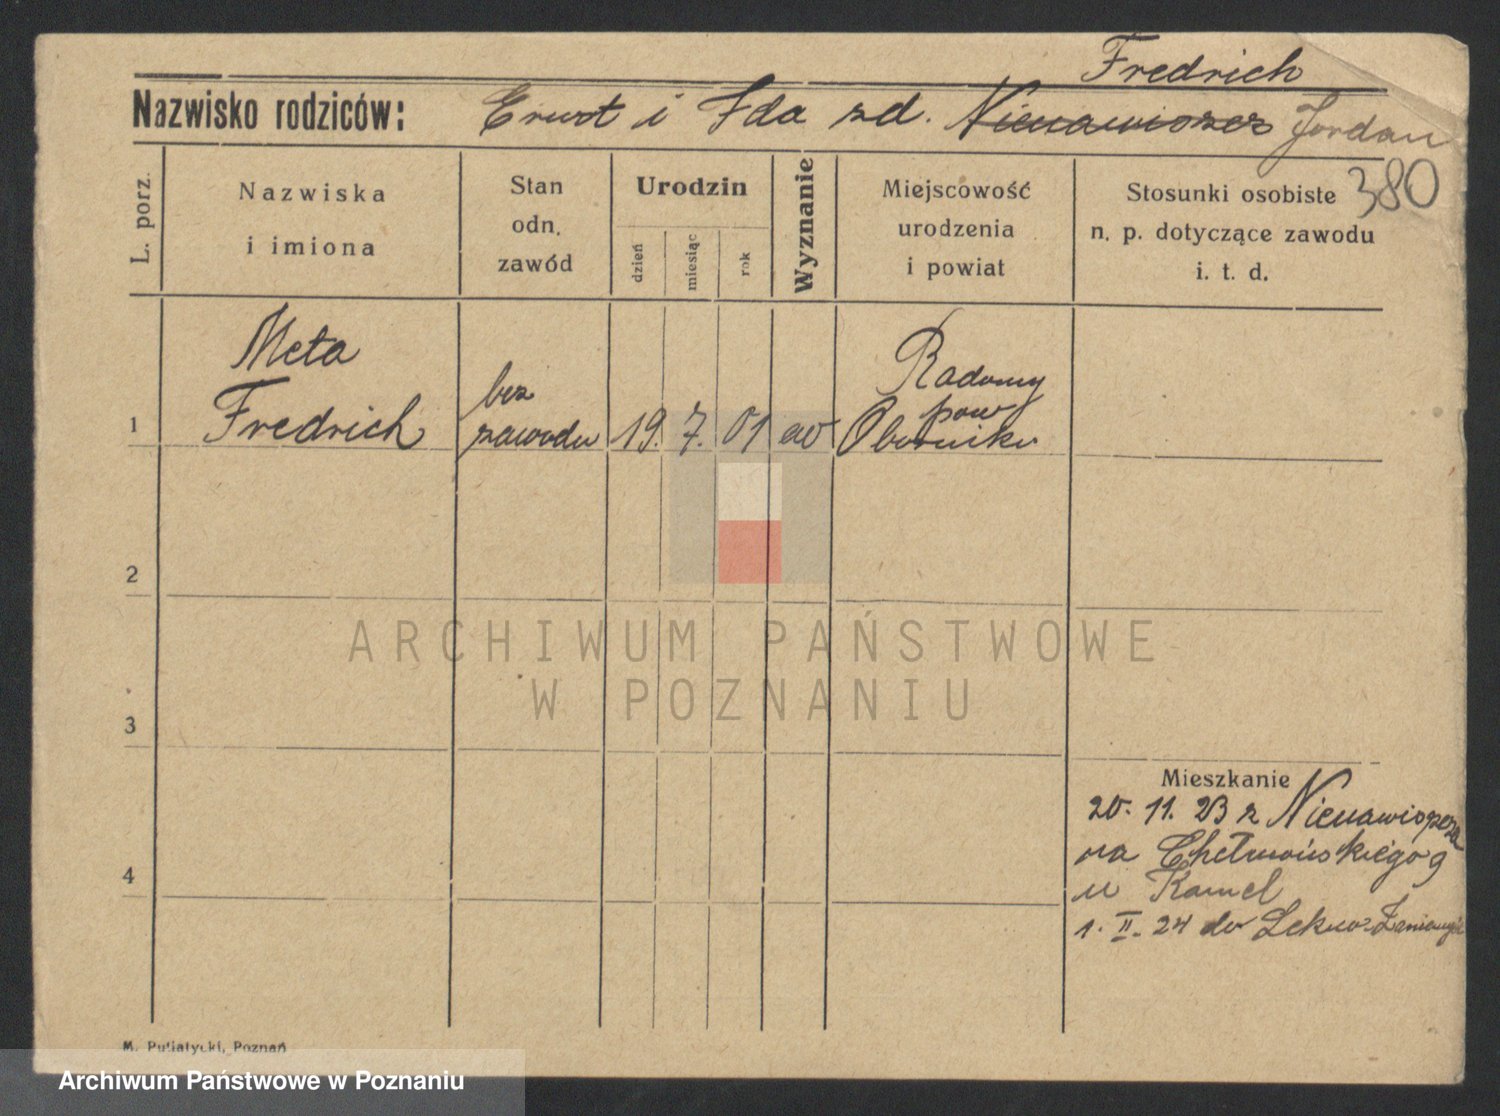 Fredrich
Nazwisko rodziców: Ernst i Ida zd. Nienawiszcz Jordan
380
L. porz.
Nazwiska
i imiona
Stan
odn.
zawód
Urodzin
dzień
miesiąc
rok
Wyznanie
Miejscowość
urodzenia
i powiat
Stosunki osobiste
n. p. dotyczące zawodu
i. t. d.
1
Meta
Fredrich
bez
zawodu
19. 7. 01
ew
Radomy
pow
Oborniki
2
3
4
Mieszkanie
20. 11. 23 z
na Chełmońskiego 9
u Kamel
1. II. 24 do
ARCHIWUM PAŃSTWOWE
W POZNANIU
M. Putiatycki, Poznań
Archiwum Państwowe w Poznaniu